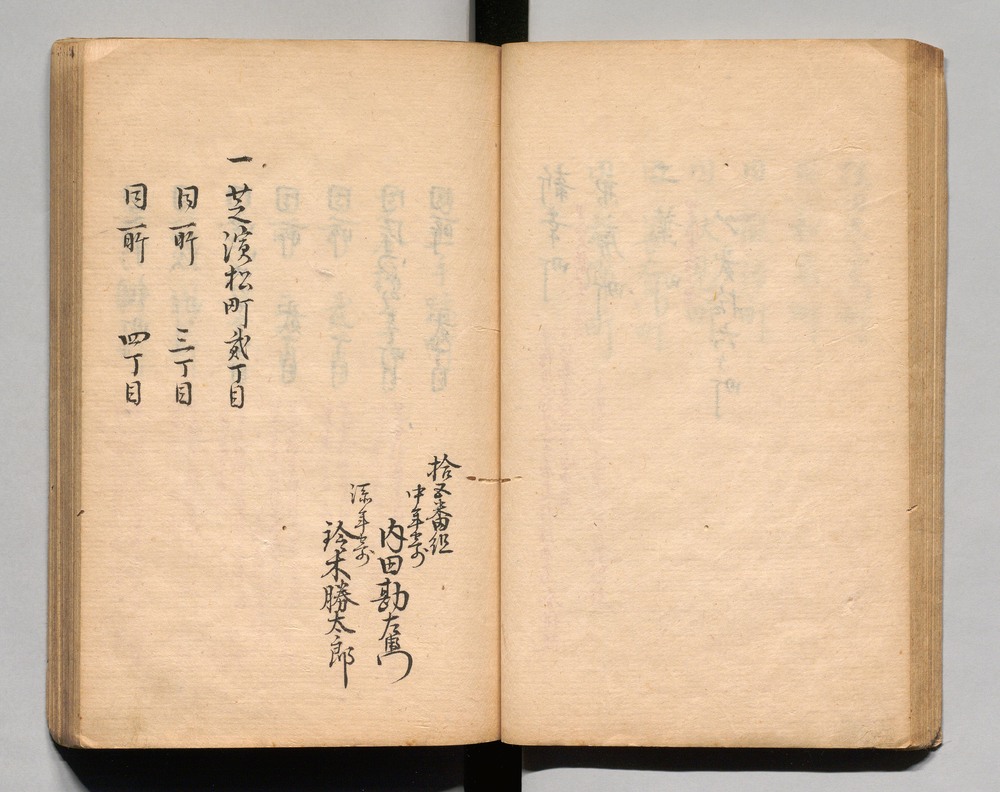 拾五番組
中年寄
内田勘左衛門
添年寄
鈴木勝太郎
一 芝濱松町貳丁目
同所 三丁目
同所 四丁目